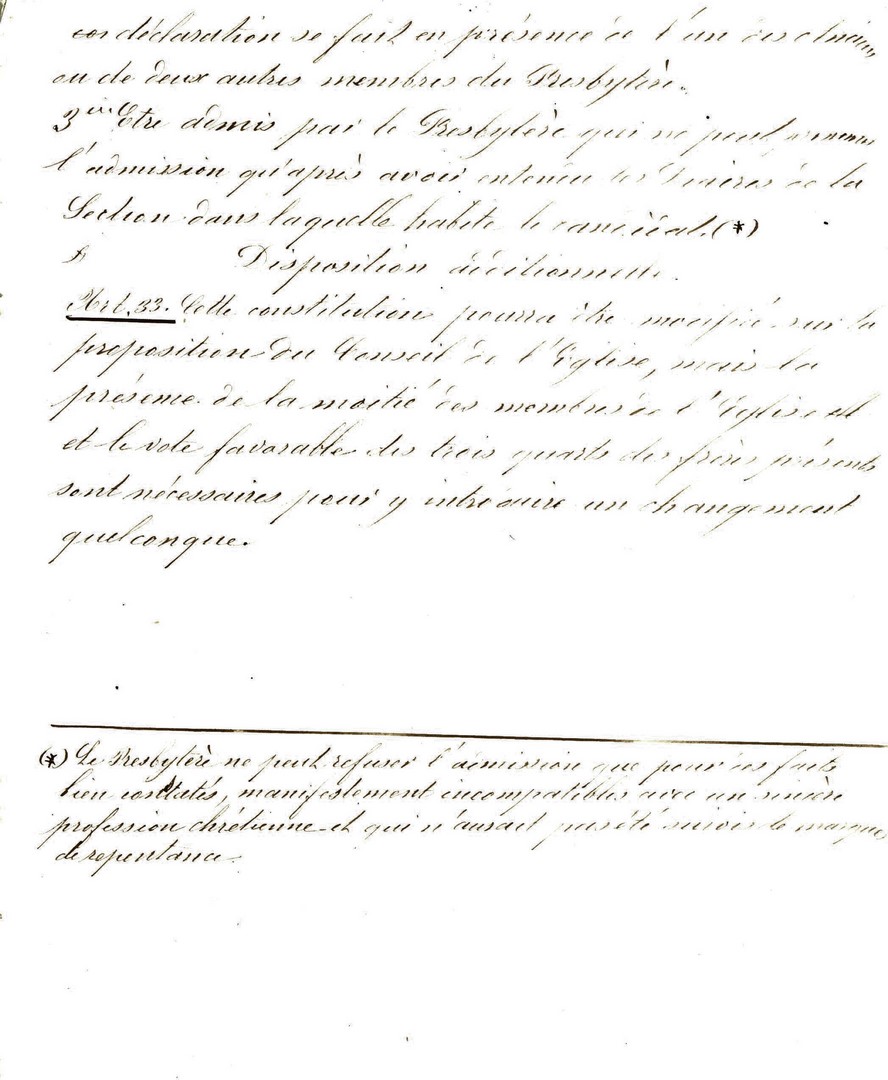 déclaration se fait en présence de l'un des anciens
ou de deux autres membres du Presbytère.
3 Etre admis par le Presbytère qui ne peut
l'admission qu'après avoir entendu les Diacres de la
Section dans laquelle habite le candidat. (*)
Disposition additionnelle.
Art. 33. Cette constitution pourra être modifiée sur la
proposition du Conseil de l'Eglise, mais la
présence de la moitié des membres de l'Eglise
et le vote favorable des trois quarts des frères présents
sont nécessaires pour y introduire un changement
quelconque.
(*) Le Presbytère ne peut refuser l'admission que pour des faits
bien constatés, manifestement incompatibles avec un sincère
profession chrétienne et qui n'aurait pas été suivis de marques
de repentance.